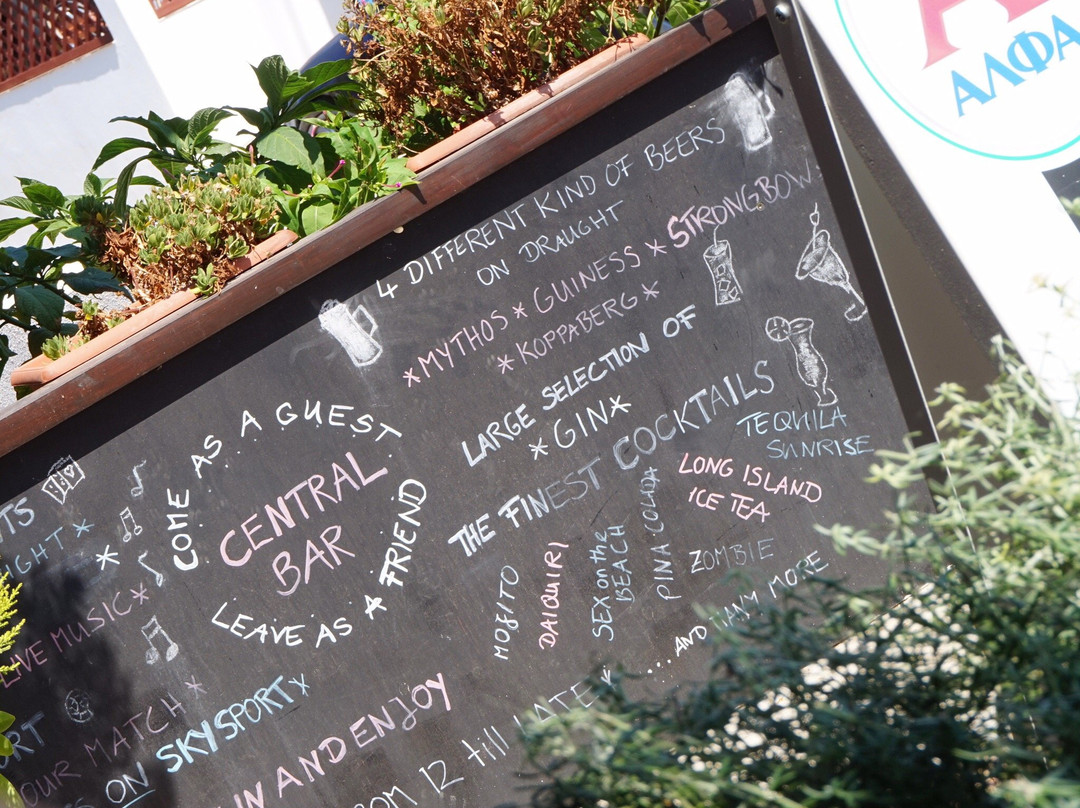 ΑΛΦΑ
4 DIFFERENT KIND OF BEERS
ON DRAUGHT
*MYTHOS * GUINESS * STRONGBOW
* KOPPABERG *
LARGE SELECTION OF
* GIN *
THE FINEST COCKTAILS
TEQUILA
SUNRISE
LONG ISLAND
ICE TEA
ZOMBIE
PINA COLADA
SEX on the
BEACH
DAIQUIRI
MOJITO
...AND MANY MORE
COME AS A GUEST
CENTRAL
BAR
LEAVE AS A FRIEND
LIVE MUSIC *
OUR MATCH *
ON SKYSPORT *
IN AND ENJOY
12 till LATE